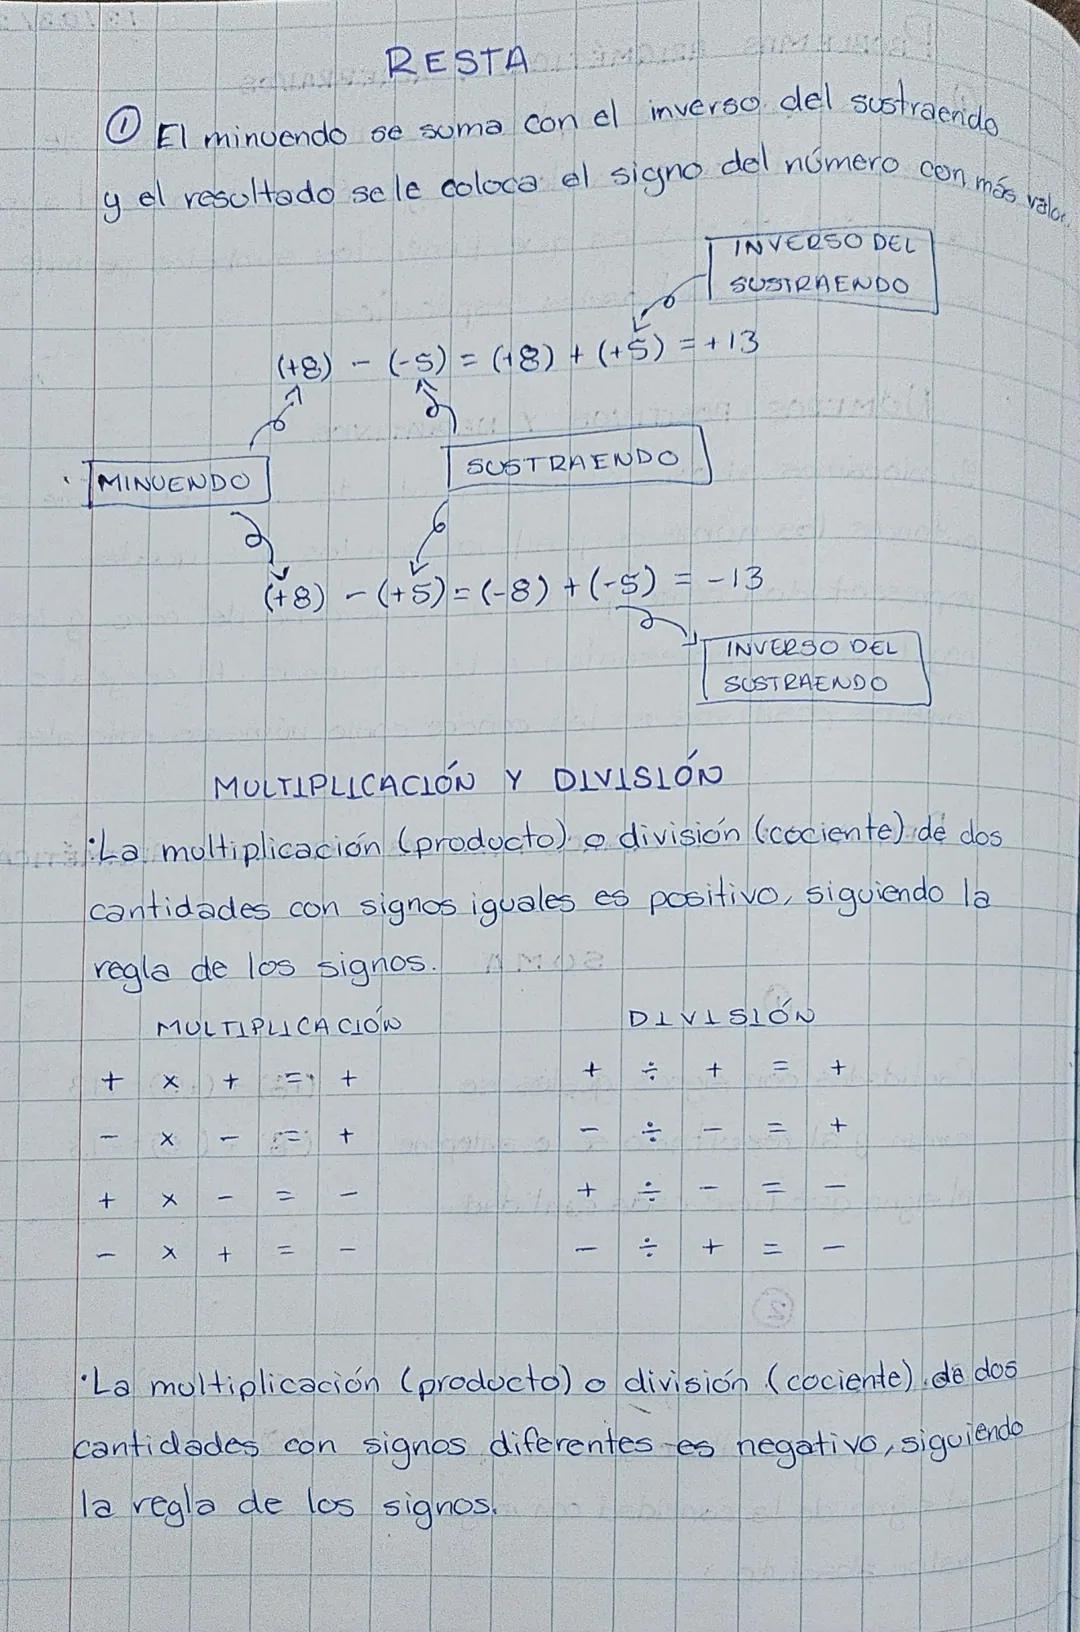 RESTA
① El minuendo se suma con el inverso del sustraendo
y el resultado se le coloca el signo del número con más valor.
INVERSO DEL
SUSTRAENDO
(+8) - (-5) = (+8) + (+5) = +13
MINUENDO
SUSTRAENDO
(+8) - (+5) = (-8) + (-5) = -13
INVERSO DEL
SUSTRAENDO
MULTIPLICACIÓN Y DIVISIÓN
·La multiplicación (producto) o división (cociente) de dos
cantidades con signos iguales es positivo, siguiendo la
regla de los signos.
MULTIPLICACIÓN
+ × + = +
- × - = +
+ × - = -
- × + = -
DIVISIÓN
+ ÷ + = +
- ÷ - = +
+ ÷ - = -
- ÷ + = -
·La multiplicación (producto) o división (cociente) de dos
cantidades con signos diferentes es negativo, siguiendo
la regla de los signos.